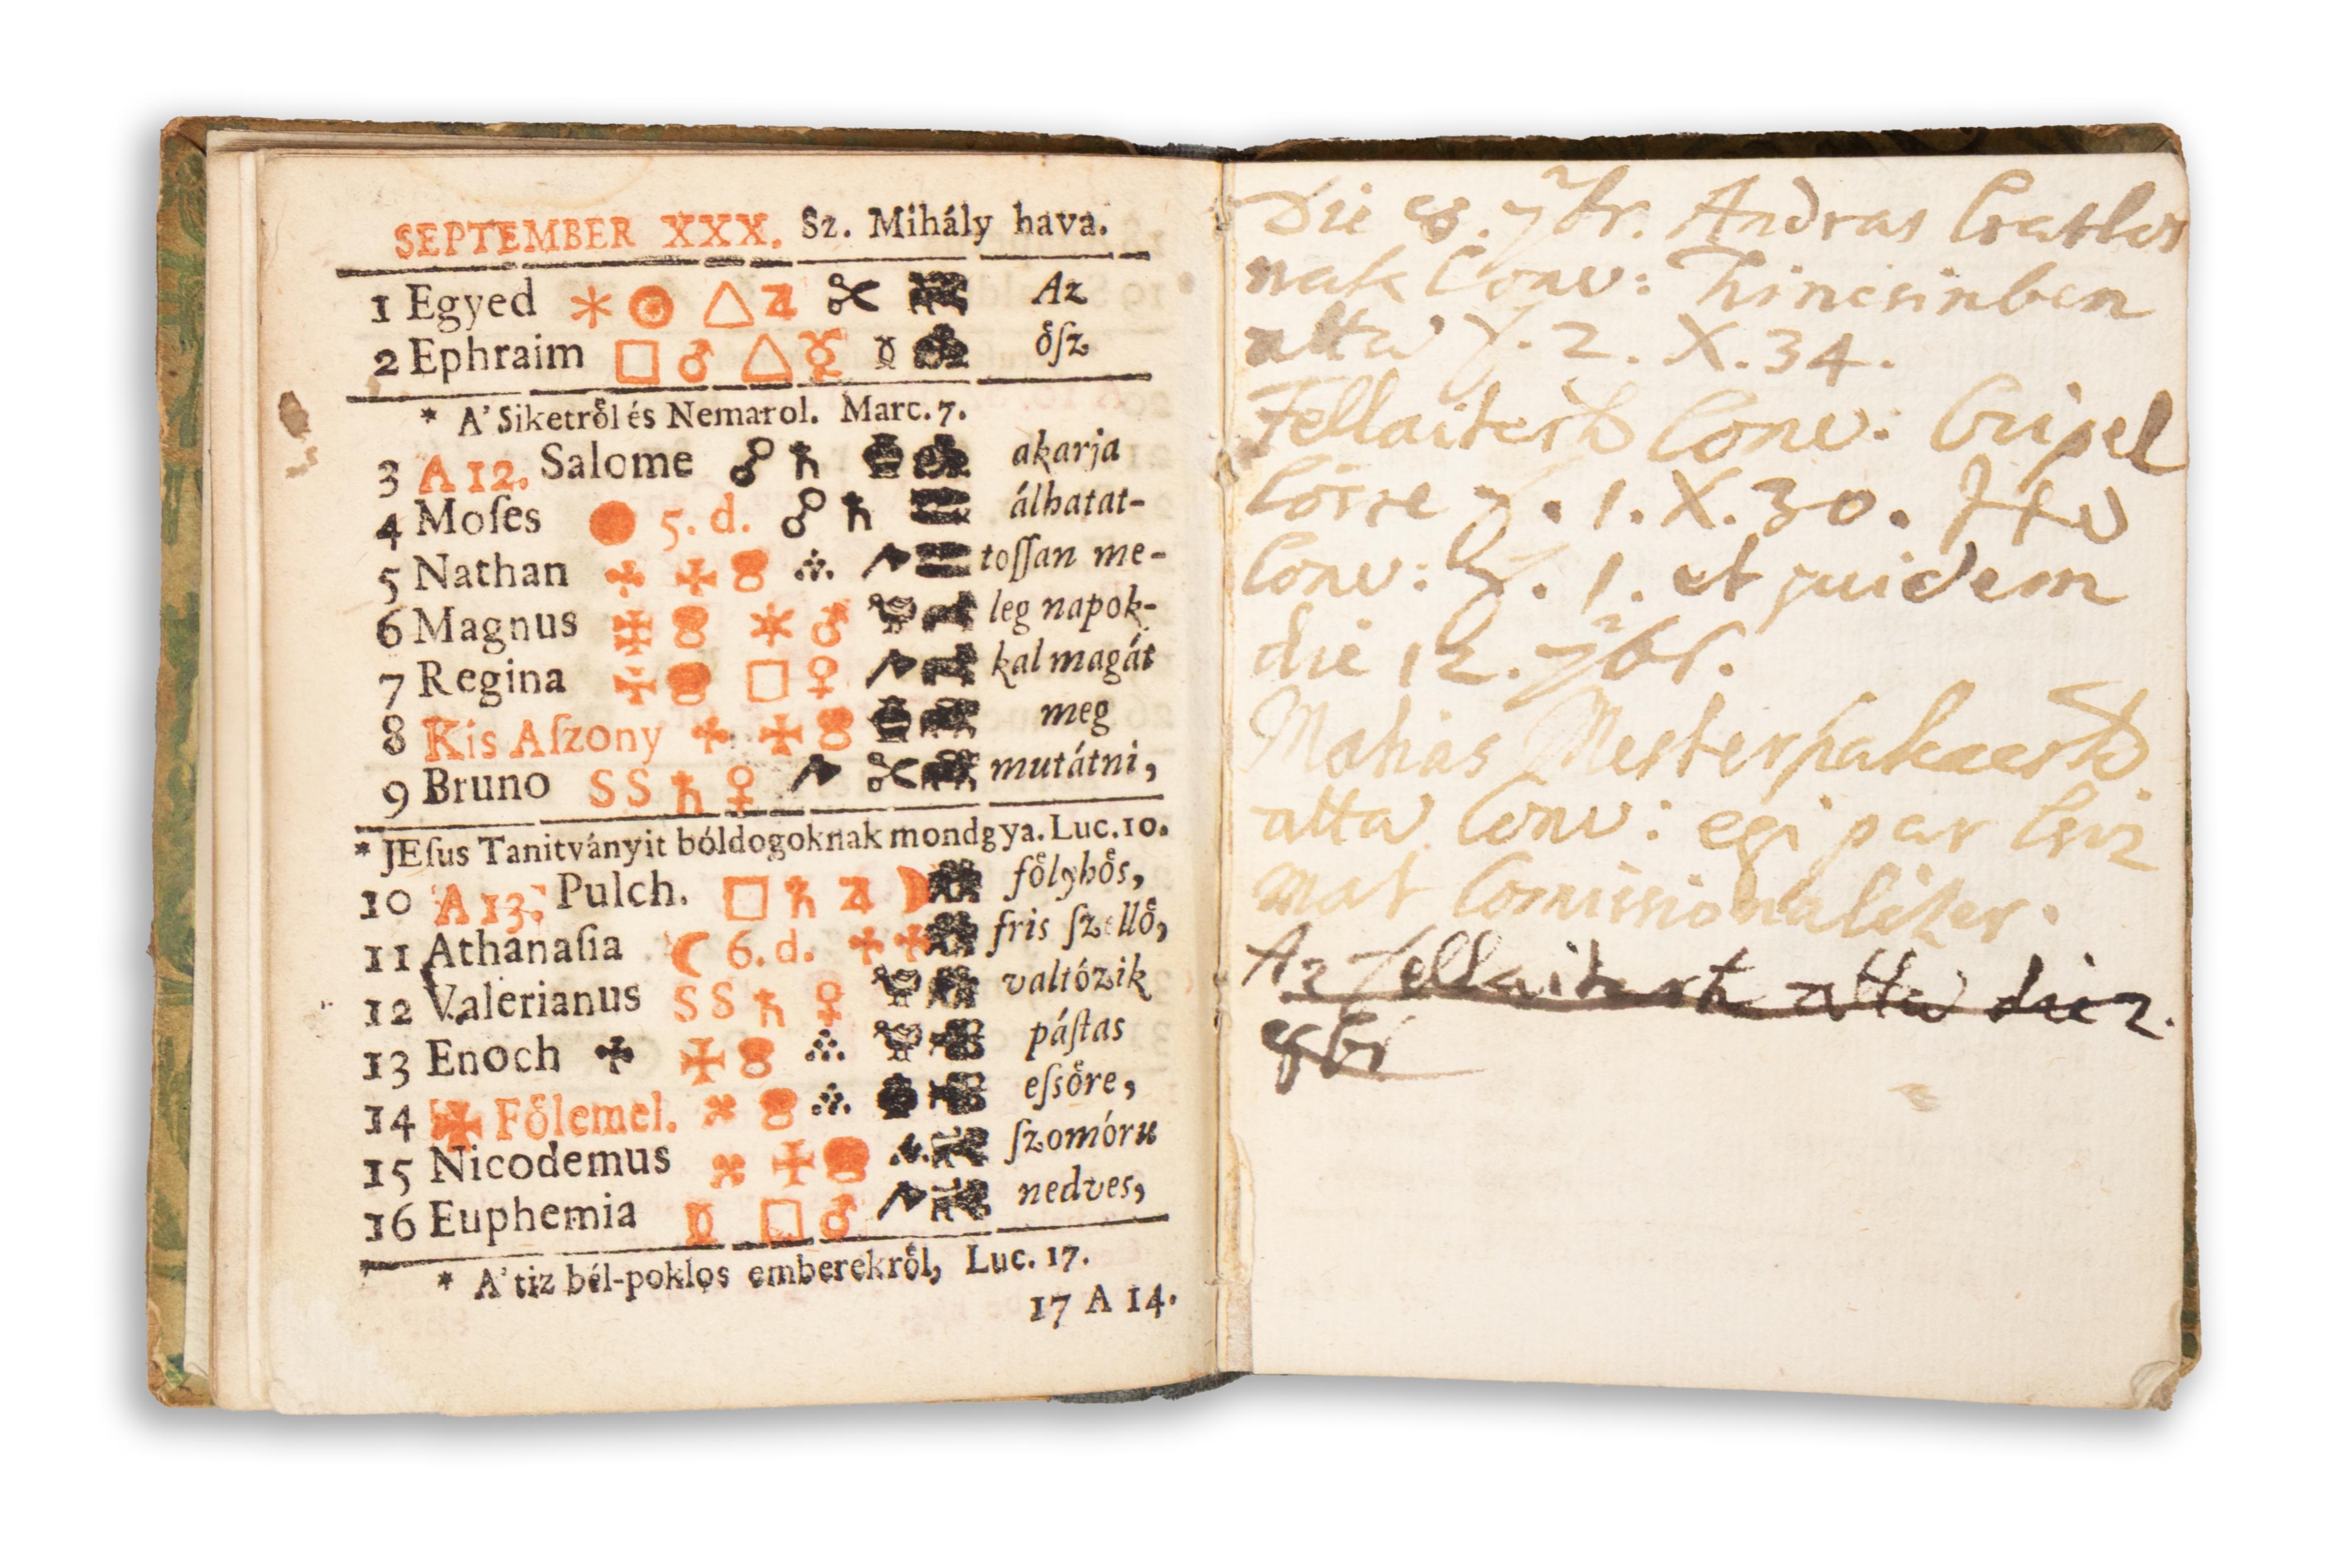 SEPTEMBER XXX. Sz. Mihály hava.
1 Egyed Az
2 Ephraim őſz
* A' Siketről és Nemarol. Marc. 7.
3 A 12. Salome akarja
4 Moſes 5. d. álhatat-
5 Nathan toſſan me-
6 Magnus leg napok-
7 Regina kal magát
8 Kis Aſzony meg
9 Bruno SS mutátni,
* JEſus Tanitványit bóldogoknak mondgya. Luc. 10.
10 A 13. Pulch. főlyhős,
11 Athanaſia 6. d. fris ſzellő,
12 Valerianus SS valtózik
13 Enoch páſtas
14 Főlemel. eſsőre,
15 Nicodemus ſzomóru
16 Euphemia nedves,
* A' tiz bél-poklos emberekről, Luc. 17.
17 A 14.
Die 8. 7br. Andras
nak Conv:
atta 2. X. 34.
Conv:
1. X. 30.
Conv: 1. et quidem
die 12. 7br.
Mathias
atta Conv: egi par
mat Comissionaliter.
Az atta die 2.